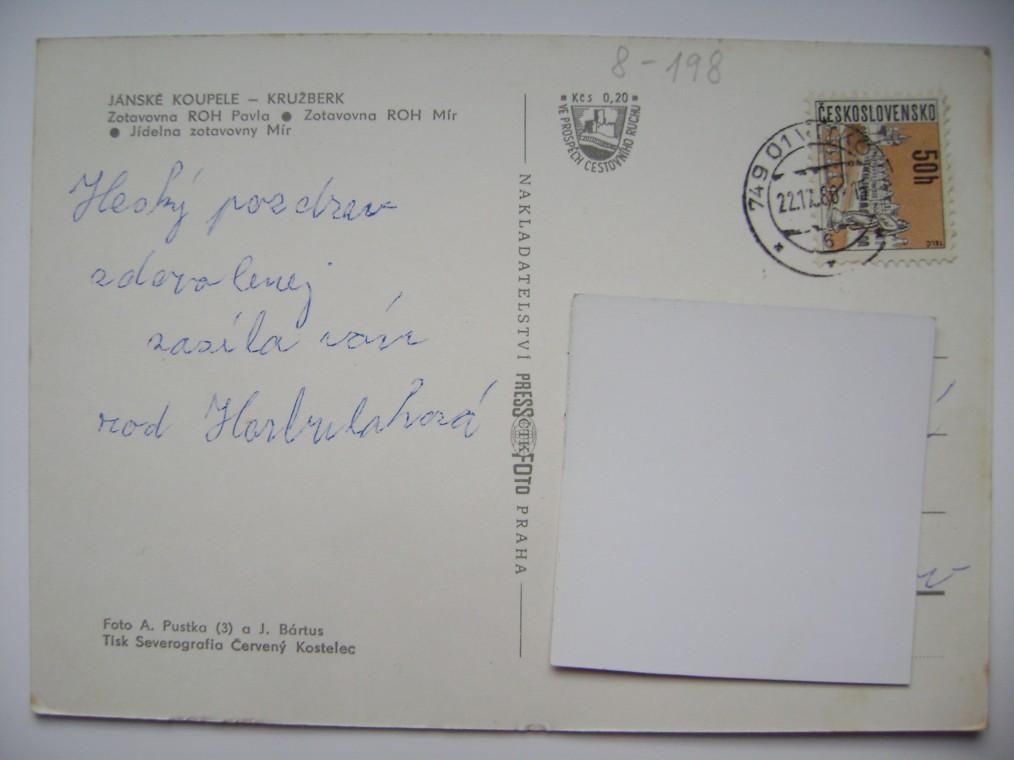 8-198
JÁNSKÉ KOUPELE – KRUŽBERK
Zotavovna ROH Pavla ● Zotavovna ROH Mír
● Jídelna zotavovny Mír
Kčs 0,20
VE PROSPĚCH CESTOVNÍHO RUCHU
ČESKOSLOVENSKO
50h
TELČ
749 01
Heský pozdrav
zdovolenej
zasíla vám
rod
NAKLADATELSTVÍ PRESSFOTO PRAHA
ČTK
Foto A. Pustka (3) a J. Bártus
Tisk Severografia Červený Kostelec